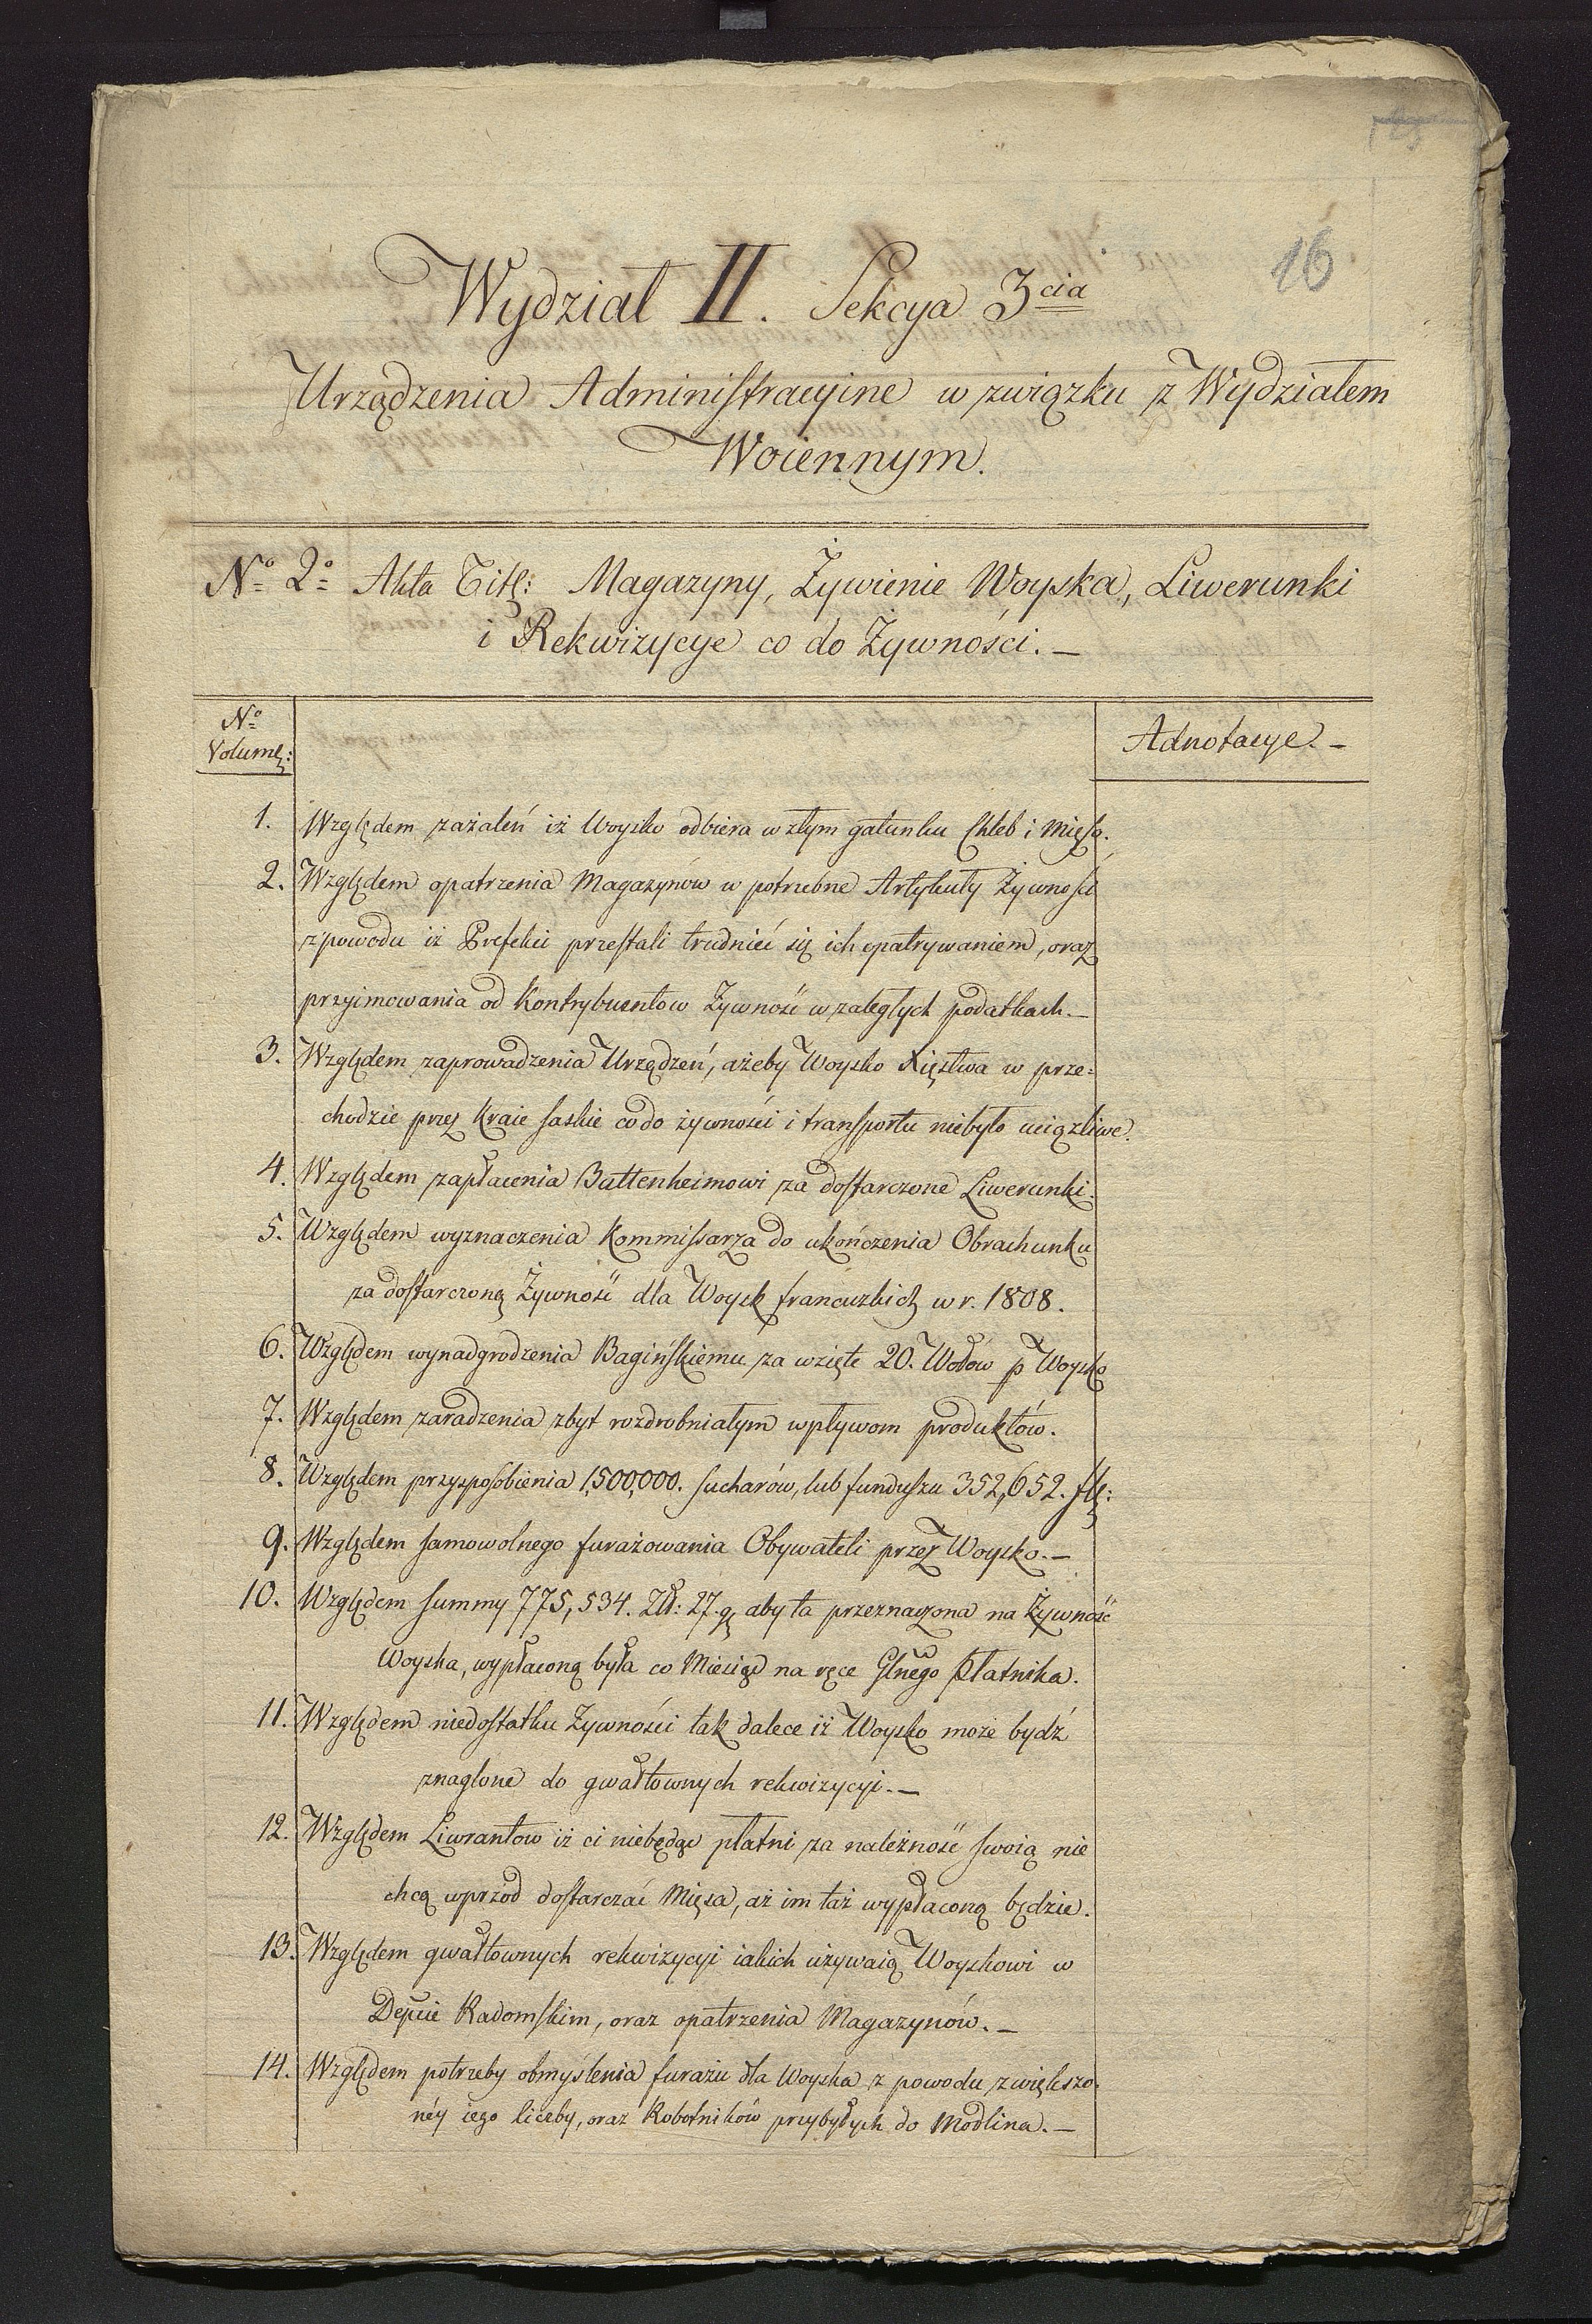 16
Wydział II. Sekcya 3cia
Urządzenia Administracyine w związku z Wydziałem
Woiennym.
No 2o Akta Tit: Magazyny, Żywienie Woyska, Liwerunki
i Rekwizycye co do Żywności. —
No
Volum:
Adnotacye. —
1. Względem zażaleń iż Woysko odbiera w złym gatunku Chleb i Mięso.
2. Względem opatrzenia Magazynów w potrzebne Artykuły Żywności
z powodu iż Prefekci przestali trudnić się ich opatrywaniem, oraz
przyimowania od Kontrybuentow Żywność w zaległych podatkach. —
3. Względem zaprowadzenia Urządzeń, ażeby Woysko Xięstwa w prze=
chodzie przez Kraie saskie co do żywności i transportu niebyło uciązliwe.
4. Względem zapłacenia Battenheimowi za dostarczone Liwerunki.
5. Względem wyznaczenia Kommissarza do ukończenia Obrachunku
za dostarczoną Żywność dla Woysk francuzkich w r. 1808.
6. Względem wynadgrodzenia Bagińskiemu za wzięte 20. Wołów p Woysko
7. Względem zaradzenia zbyt rozdrobniałym wpływom produktów.
8. Względem przysposobienia 1,500,000. sucharów, lub funduszu 352,652. fl:
9. Względem samowolnego furażowania Obywateli przez Woysko. —
10. Względem summy 775,534. Zł: 27. g aby ta przeznaczona na Żywność
Woyska, wypłaconą była co Miesiąc na ręce Głnego Płatnika.
11. Względem niedostatku Żywności tak dalece iż Woysko może bydź
znaglone do gwałtownych rekwizycyi. —
12. Względem Liwrantow iż ci niebędąc płatni za należność swoią nie
chcą wprzód dostarczać Mięsa, aż im taż wypłaconą będzie.
13. Względem gwałtownych rekwizycyi iakich używaią Woyskowi w
Depcie Radomskim, oraz opatrzenia Magazynów. —
14. Względem potrzeby obmyślenia furażu dla Woyska z powodu zwiększo=
néy iego liczby, oraz Robotników przybyłych do Modlina. —